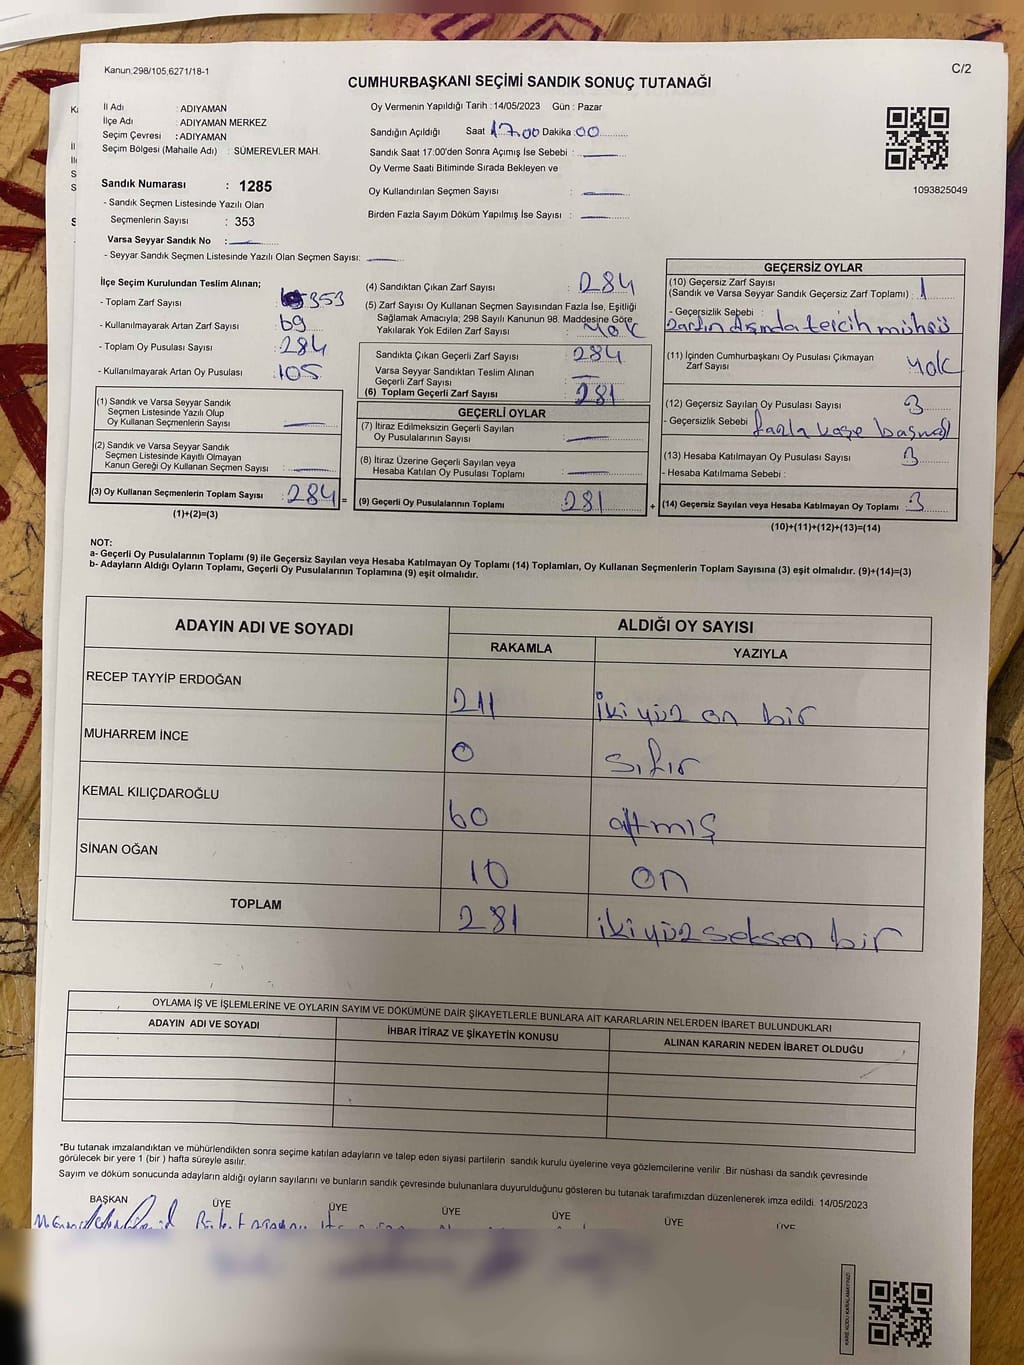 Kanun,298/105,6271/18-1
C/2
CUMHURBAŞKANI SEÇİMİ SANDIK SONUÇ TUTANAĞI
İl Adı : ADIYAMAN
İlçe Adı : ADIYAMAN MERKEZ
Seçim Çevresi : ADIYAMAN
Seçim Bölgesi (Mahalle Adı) : SÜMEREVLER MAH.
Sandık Numarası : 1285
- Sandık Seçmen Listesinde Yazılı Olan
Seçmenlerin Sayısı : 353
Varsa Seyyar Sandık No :
- Seyyar Sandık Seçmen Listesinde Yazılı Olan Seçmen Sayısı:
Oy Vermenin Yapıldığı Tarih : 14/05/2023 Gün : Pazar
Sandığın Açıldığı Saat 17.00 Dakika 00
Sandık Saat 17:00'den Sonra Açımış İse Sebebi :
Oy Verme Saati Bitiminde Sırada Bekleyen ve
Oy Kullandırılan Seçmen Sayısı :
Birden Fazla Sayım Döküm Yapılmış İse Sayısı :
1093825049
İlçe Seçim Kurulundan Teslim Alınan;
- Toplam Zarf Sayısı : 353
- Kullanılmayarak Artan Zarf Sayısı : 69
- Toplam Oy Pusulası Sayısı : 284
- Kullanılmayarak Artan Oy Pusulası : 105
(1) Sandık ve Varsa Seyyar Sandık
Seçmen Listesinde Yazılı Olup
Oy Kullanan Seçmenlerin Sayısı :
(2) Sandık ve Varsa Seyyar Sandık
Seçmen Listesinde Kayıtlı Olmayan
Kanun Gereği Oy Kullanan Seçmen Sayısı :
(3) Oy Kullanan Seçmenlerin Toplam Sayısı : 284 =
(1)+(2)=(3)
(4) Sandıktan Çıkan Zarf Sayısı : 284
(5) Zarf Sayısı Oy Kullanan Seçmen Sayısından Fazla İse, Eşitliği
Sağlamak Amacıyla; 298 Sayılı Kanunun 98. Maddesine Göre
Yakılarak Yok Edilen Zarf Sayısı : YOK
Sandıkta Çıkan Geçerli Zarf Sayısı : 284
Varsa Seyyar Sandıktan Teslim Alınan
Geçerli Zarf Sayısı :
(6) Toplam Geçerli Zarf Sayısı : 281
GEÇERLİ OYLAR
(7) İtiraz Edilmeksizin Geçerli Sayılan
Oy Pusulalarının Sayısı :
(8) İtiraz Üzerine Geçerli Sayılan veya
Hesaba Katılan Oy Pusulaları Toplamı :
(9) Geçerli Oy Pusulalarının Toplamı : 281 +
GEÇERSİZ OYLAR
(10) Geçersiz Zarf Sayısı
(Sandık ve Varsa Seyyar Sandık Geçersiz Zarf Toplamı) : 1
- Geçersizlik Sebebi :
Zarfın dışında tercih mührü
(11) İçinden Cumhurbaşkanı Oy Pusulası Çıkmayan
Zarf Sayısı : YOK
(12) Geçersiz Sayılan Oy Pusulası Sayısı : 3
- Geçersizlik Sebebi : fazla kaşe
(13) Hesaba Katılmayan Oy Pusulası Sayısı : 3
- Hesaba Katılmama Sebebi :
(14) Geçersiz Sayılan veya Hesaba Katılmayan Oy Toplamı : 3
(10)+(11)+(12)+(13)=(14)
NOT:
a- Geçerli Oy Pusulalarının Toplamı (9) ile Geçersiz Sayılan veya Hesaba Katılmayan Oy Toplamı (14) Toplamları, Oy Kullanan Seçmenlerin Toplam Sayısına (3) eşit olmalıdır. (9)+(14)=(3)
b- Adayların Aldığı Oyların Toplamı, Geçerli Oy Pusulalarının Toplamına (9) eşit olmalıdır.
ADAYIN ADI VE SOYADI
ALDIĞI OY SAYISI
RAKAMLA YAZIYLA
RECEP TAYYİP ERDOĞAN 211 iki yüz on bir
MUHARREM İNCE 0 sıfır
KEMAL KILIÇDAROĞLU 60 altmış
SİNAN OĞAN 10 on
TOPLAM 281 iki yüz seksen bir
OYLAMA İŞ VE İŞLEMLERİNE VE OYLARIN SAYIM VE DÖKÜMÜNE DAİR ŞİKAYETLERLE BUNLARA AİT KARARLARIN NELERDEN İBARET BULUNDUKLARI
ADAYIN ADI VE SOYADI İHBAR İTİRAZ VE ŞİKAYETİN KONUSU ALINAN KARARIN NEDEN İBARET OLDUĞU
*Bu tutanak imzalandıktan ve mühürlendikten sonra seçime katılan adayların ve talep eden siyasi partilerin sandık kurulu üyelerine veya gözlemcilerine verilir .Bir nüshası da sandık çevresinde
görülecek bir yere 1 (bir ) hafta süreyle asılır.
Sayım ve döküm sonucunda adayların aldığı oyların sayılarını ve bunların sandık çevresinde bulunanlara duyurulduğunu gösteren bu tutanak tarafımızdan düzenlenerek imza edildi. 14/05/2023
BAŞKAN ÜYE ÜYE ÜYE ÜYE ÜYE ÜYE